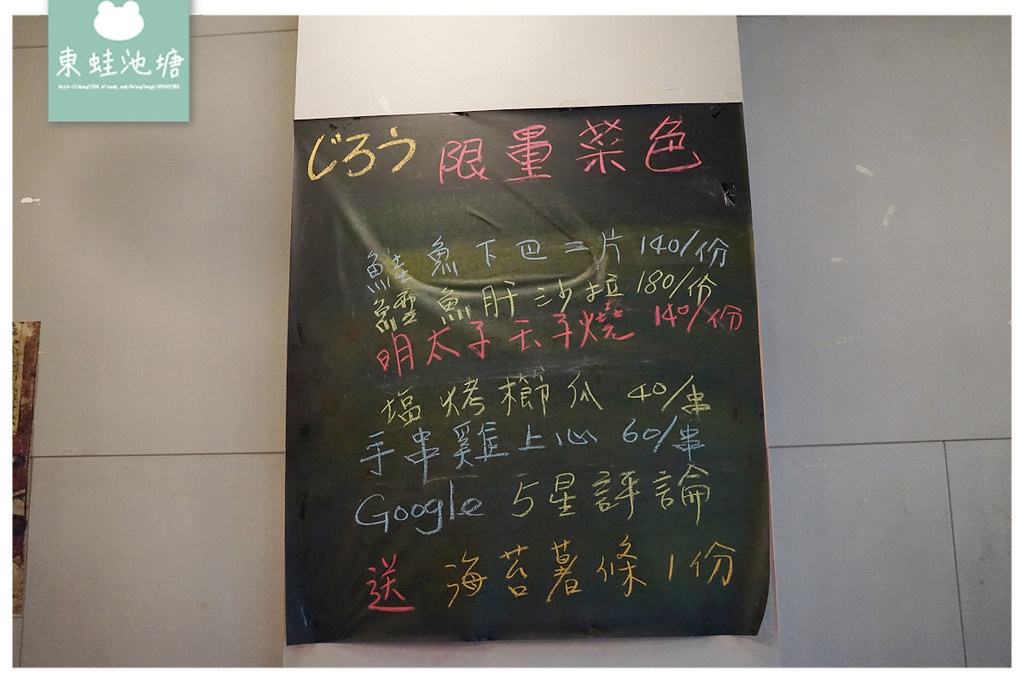 東蛙池塘
じろう 限量菜色
鮭魚下巴二片 140/份
鱈魚肝沙拉 180/份
明太子玉子燒 140/份
塩烤櫛瓜 40/串
手串雞上心 60/串
Google 5星評論
送 海苔薯條 1份